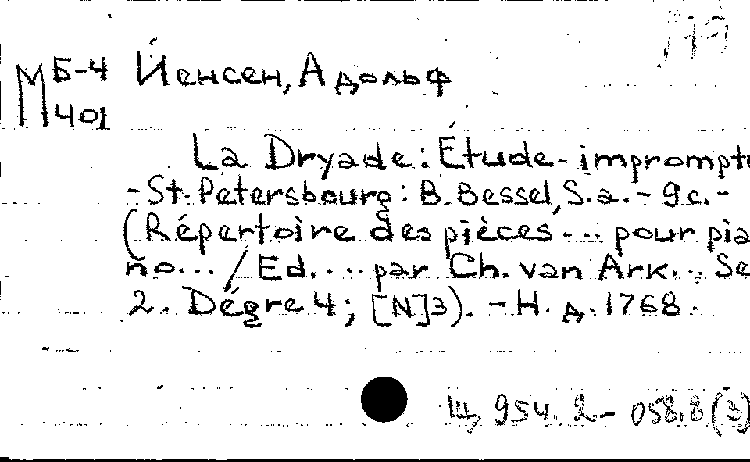 МБ-4 Йенсен, Адольф
401
La Dryade: Étude-impromptu
-St.Petersbourg: B.Bessel, S.a. - 9c.-
(Répertoire des pièces ... pour pia
no... / Ed. ... par Ch. van Ark... Se
2. Dégre 4; [N]3). - Н. д. 1768.
Щ 954.2-058.8(3)